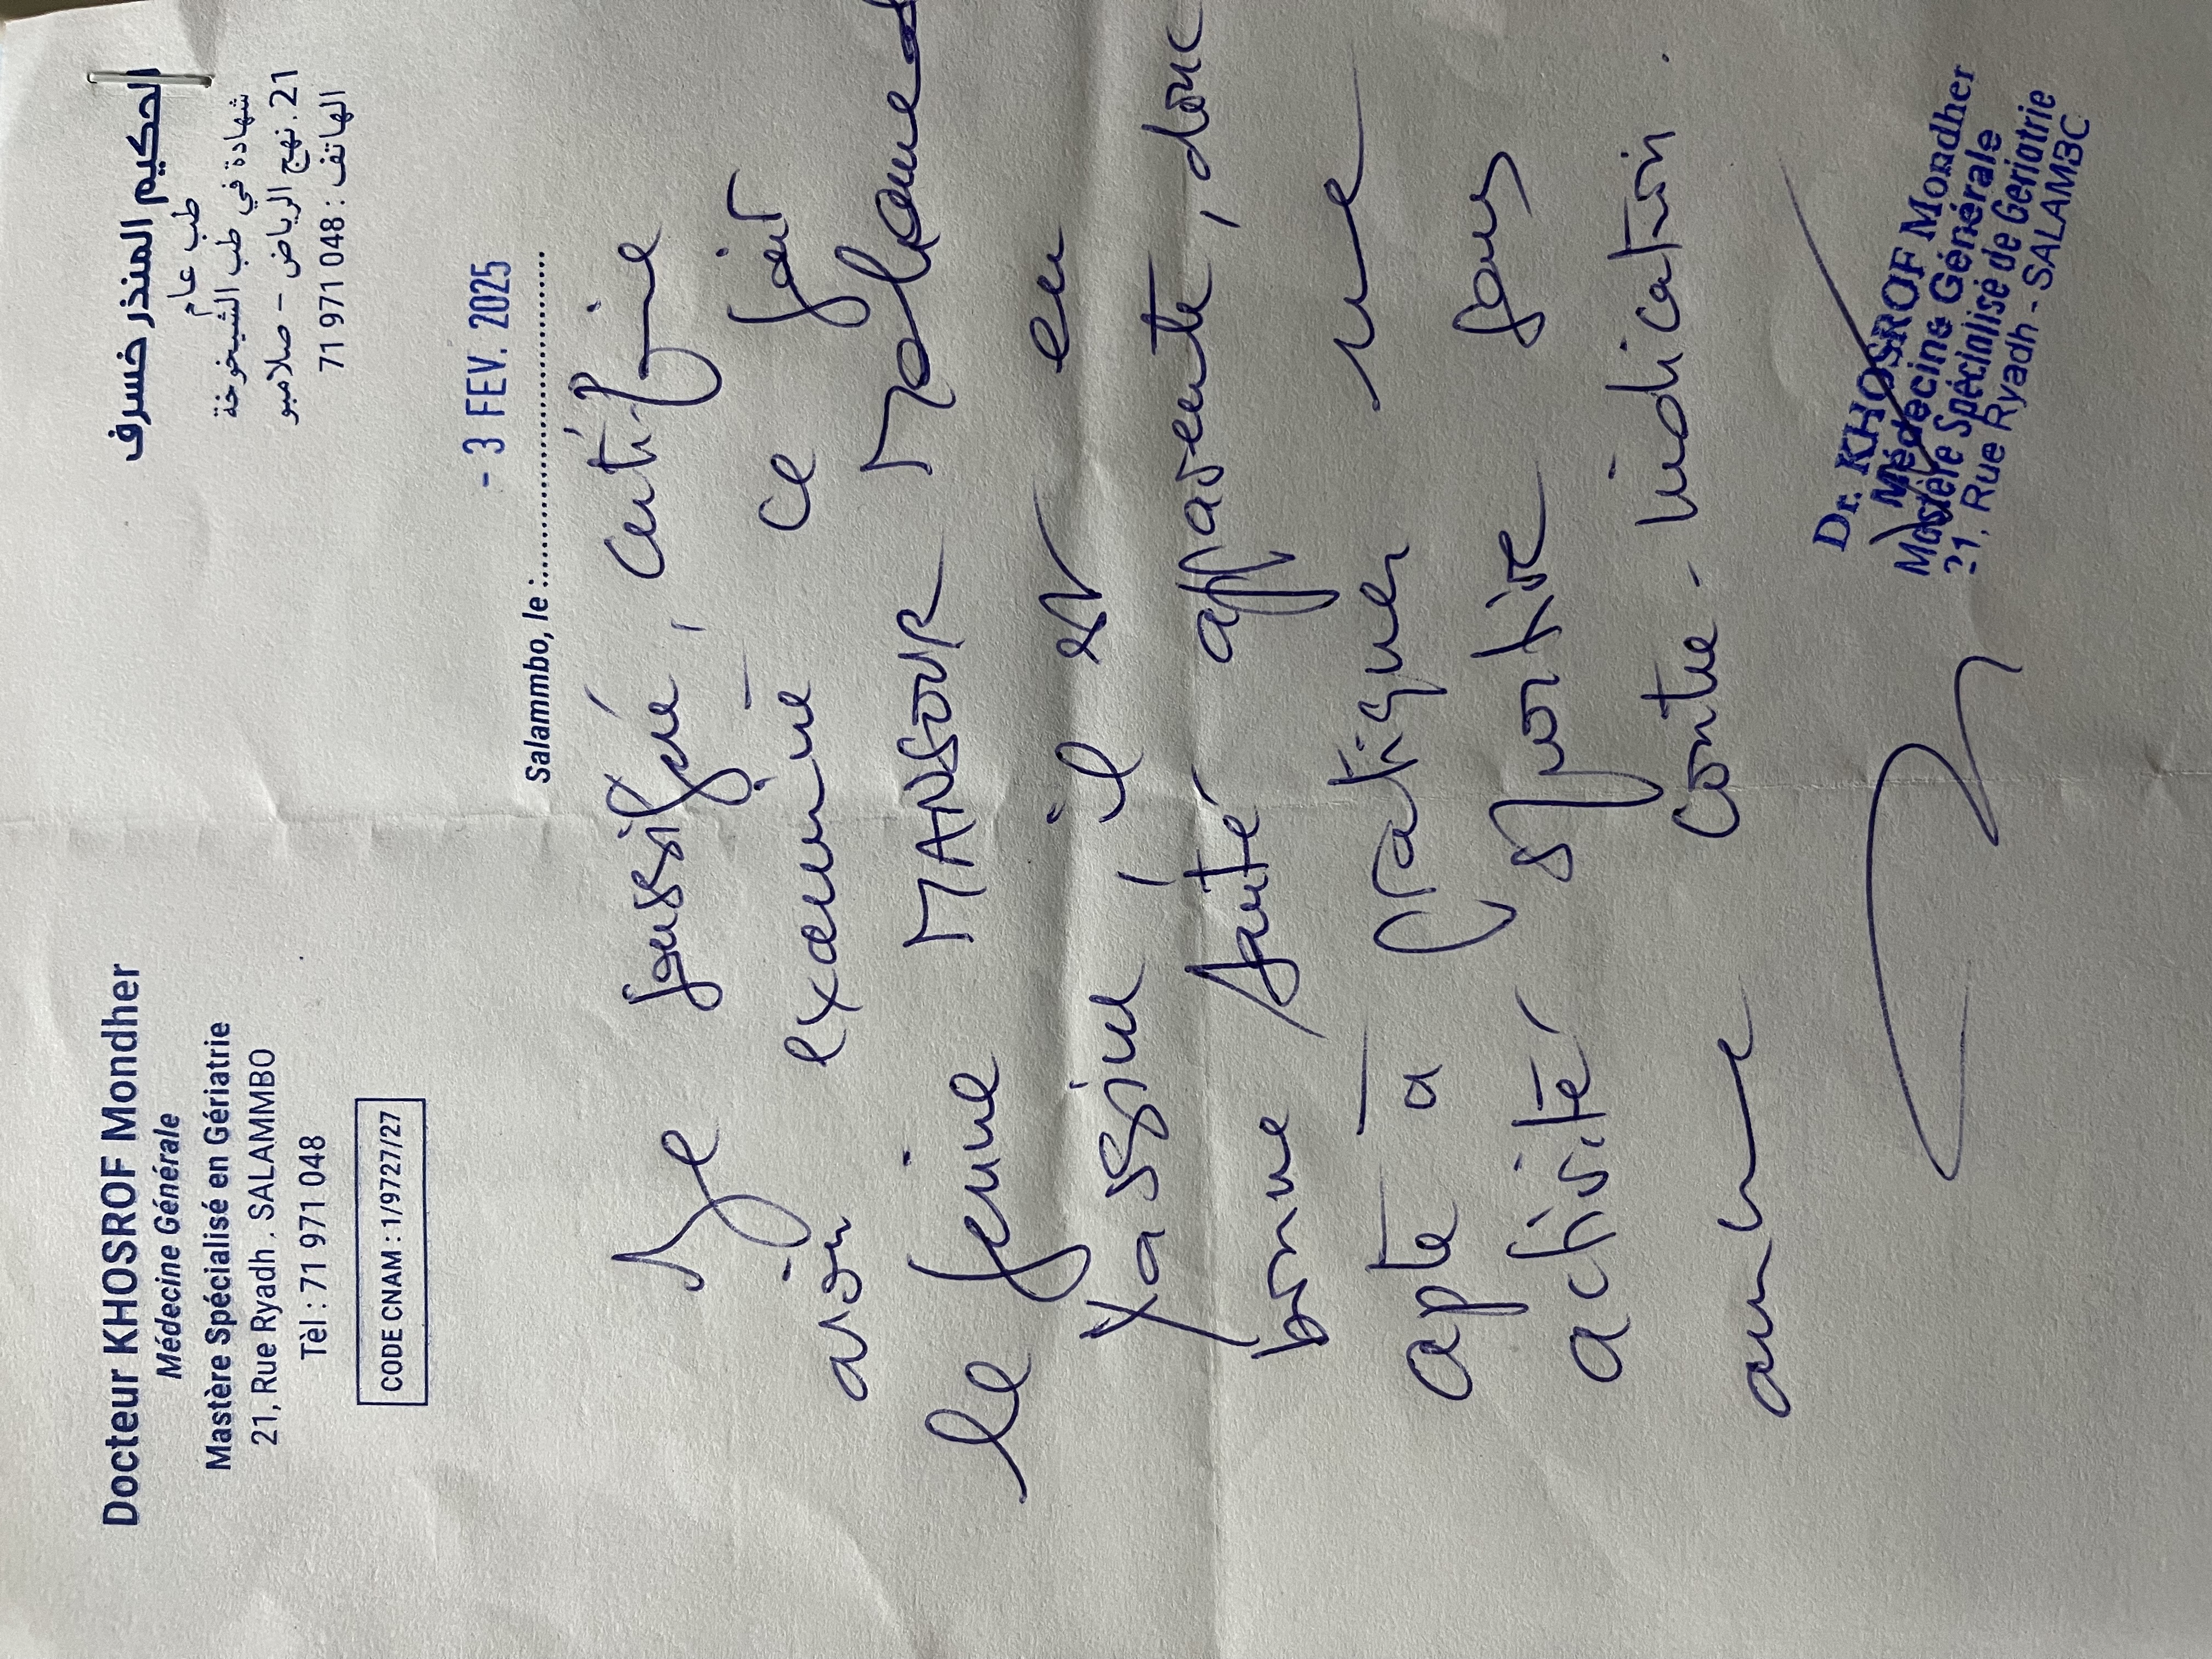 Docteur KHOSROF Mondher
Médecine Générale
Mastère Spécialisé en Gériatrie
21, Rue Ryadh . SALAMMBO
Tèl : 71 971 048
CODE CNAM : 1/9727/27
الحكيم المنذر خسرف
طب عام
شهادة في طب الشيخوخة
21، نهج الرياض - صلامبو
الهاتف : 048 971 71
- 3 FEV. 2025
Salammbo, le :
Je soussigné, certifie
avoir examiné ce
le jeune MANSOUR Mohamed
Yassine, il est en
bonne santé apparente, donc
apte à pratiquer une
activité sportive sans
aucune contre-indication.
Dr. KHOSROF Mondher
Médecine Générale
Mastère Spécialisé de Gériatrie
21, Rue Ryadh - SALAMBC